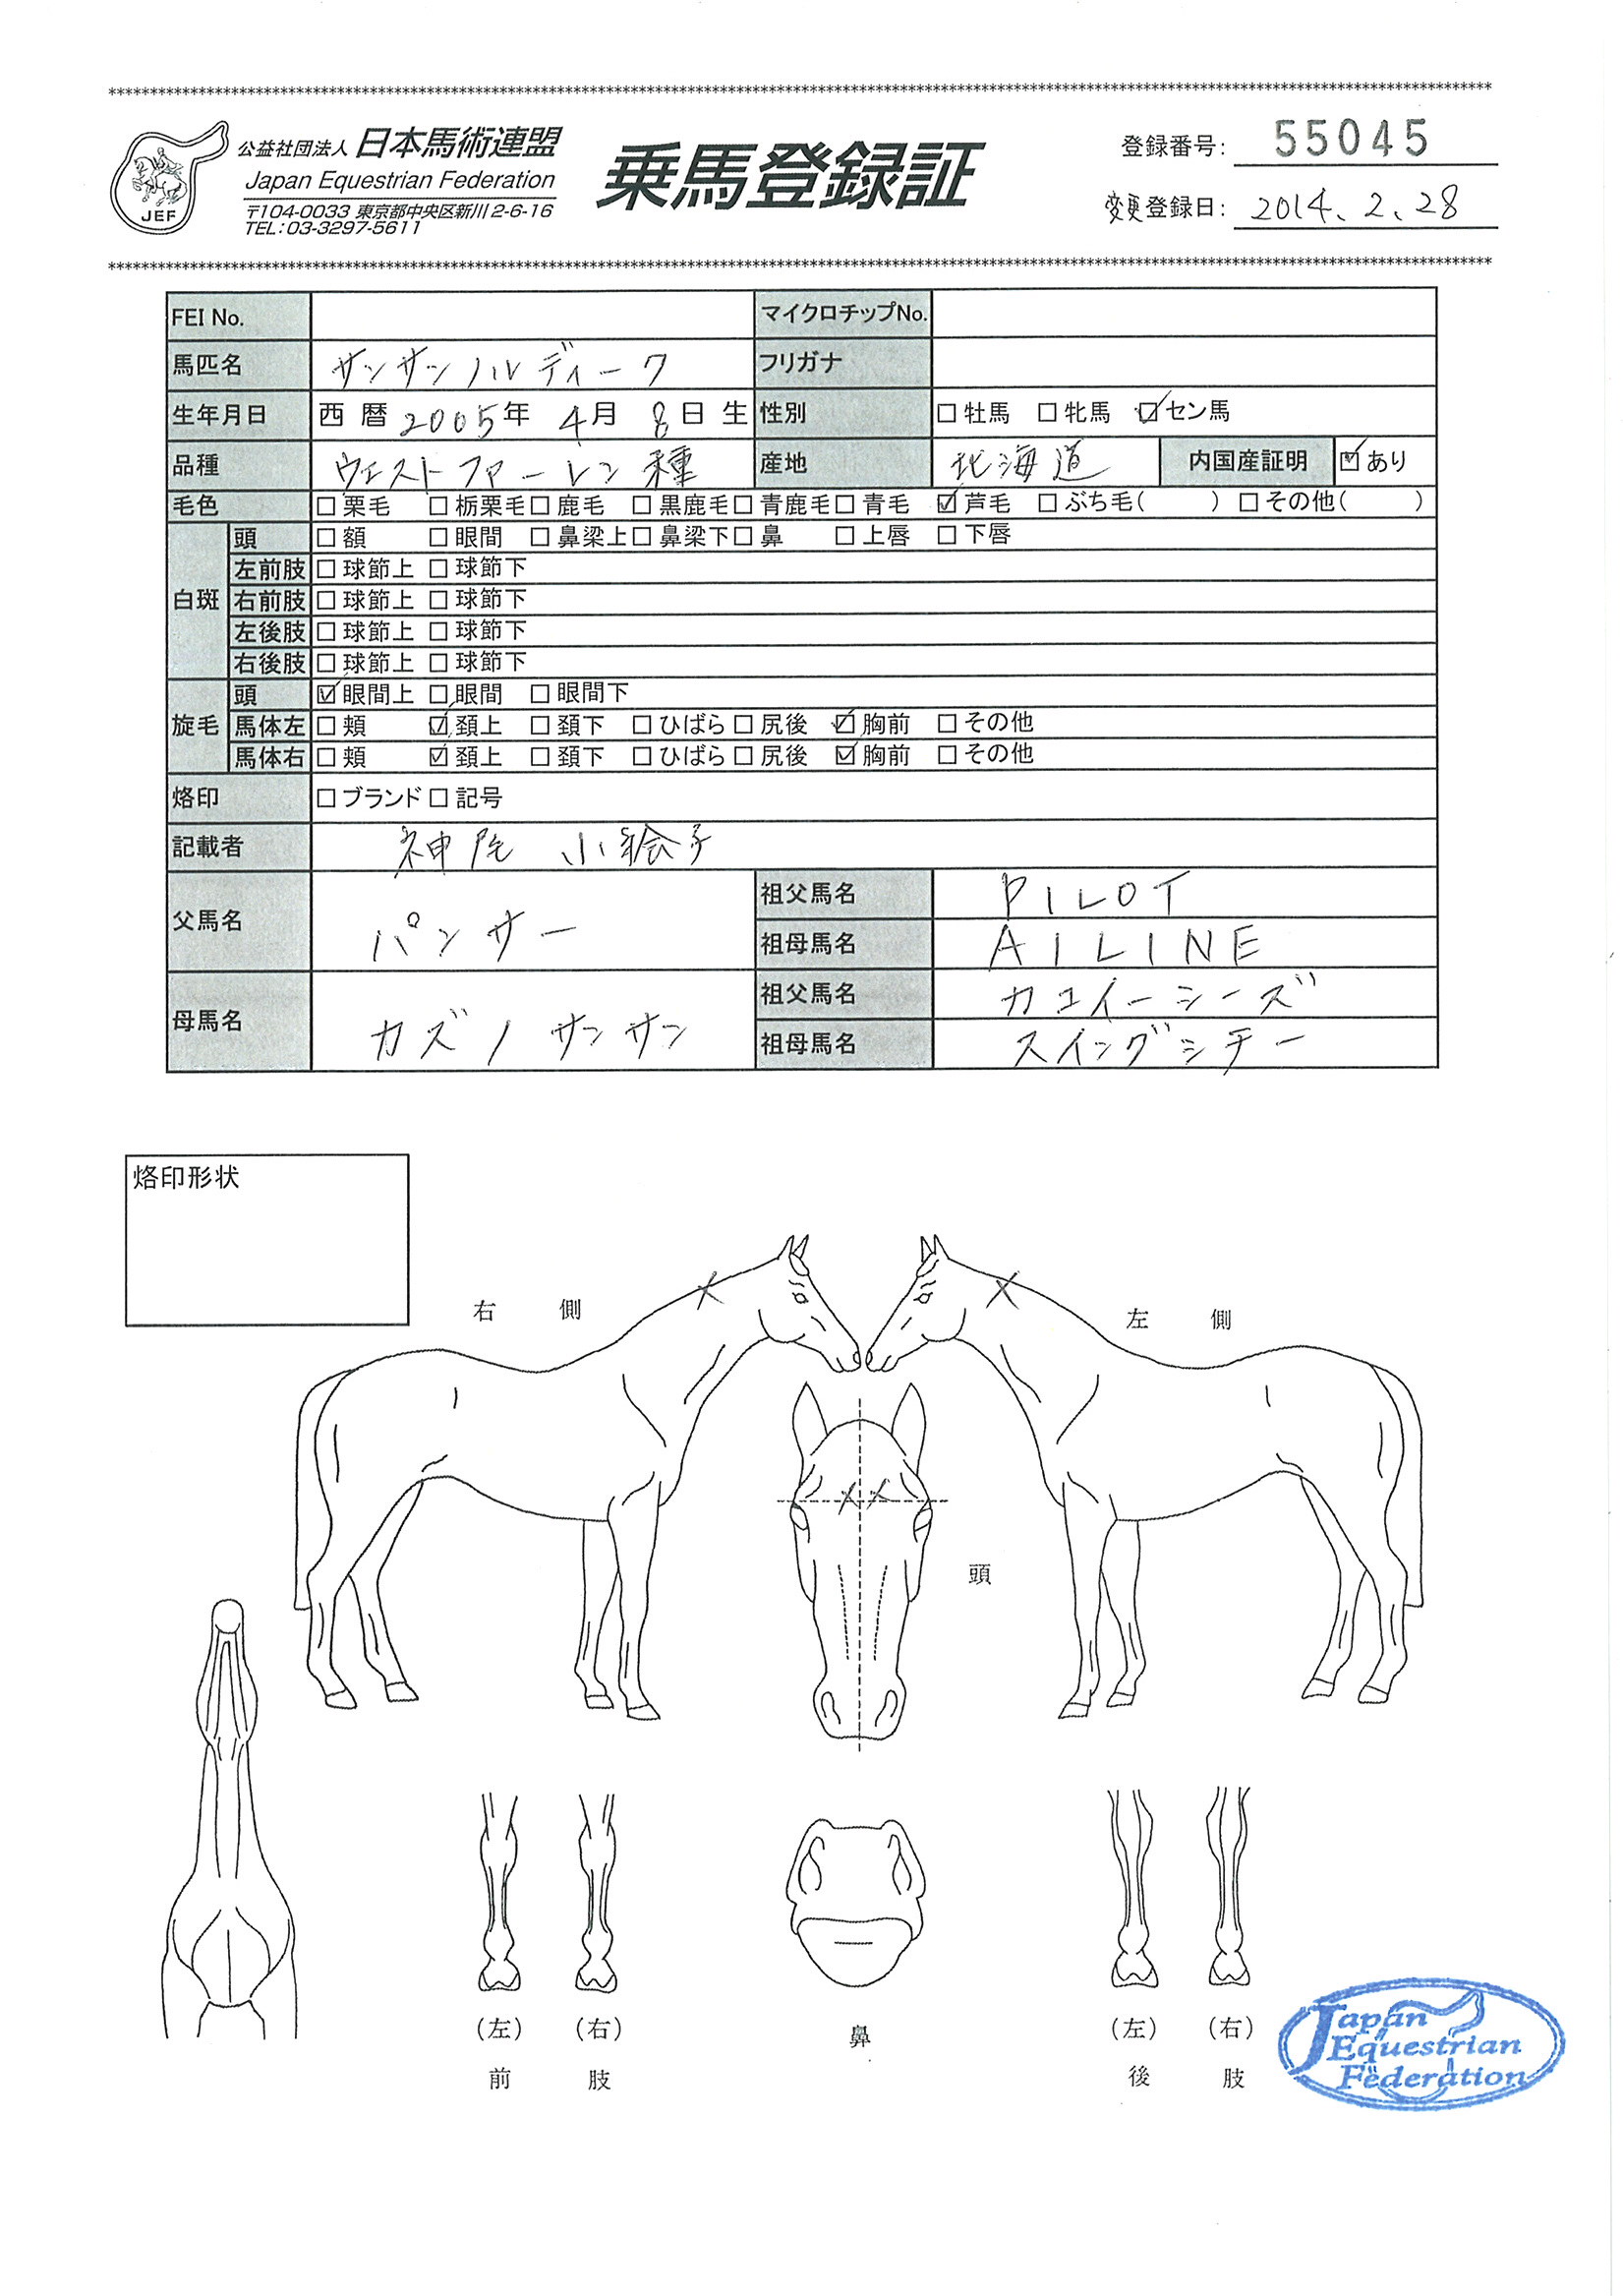 公益社団法人 日本馬術連盟
Japan Equestrian Federation
〒104-0033 東京都中央区新川2-6-16
TEL:03-3297-5611
JEF
乗馬登録証
登録番号: 55045
変更登録日: 2014.2.28
FEI No. マイクロチップNo.
馬匹名 サンサンノルディーク フリガナ
生年月日 西暦 2005年 4月 8日 生 性別 □牡馬 □牝馬 ☑セン馬
品種 ウェストファーレン種 産地 北海道 内国産証明 ☑あり
毛色 □栗毛 □栃栗毛 □鹿毛 □黒鹿毛 □青鹿毛 □青毛 ☑芦毛 □ぶち毛( ) □その他( )
白斑 頭 □額 □眼間 □鼻梁上 □鼻梁下 □鼻 □上唇 □下唇
左前肢 □球節上 □球節下
右前肢 □球節上 □球節下
左後肢 □球節上 □球節下
右後肢 □球節上 □球節下
旋毛 頭 ☑眼間上 □眼間 □眼間下
馬体左 □頬 ☑頚上 □頚下 □ひばら □尻後 ☑胸前 □その他
馬体右 □頬 ☑頚上 □頚下 □ひばら □尻後 ☑胸前 □その他
烙印 □ブランド □記号
記載者 神 小絵子
父馬名 パンサー 祖父馬名 PILOT
祖母馬名 AILINE
母馬名 カズノサンサン 祖父馬名 カコイーシーズ
祖母馬名 スイングシチー
烙印形状
右 側
左 側
頭
(左) (右)
前 肢
鼻
(左) (右)
後 肢
Japan
Equestrian
Federation